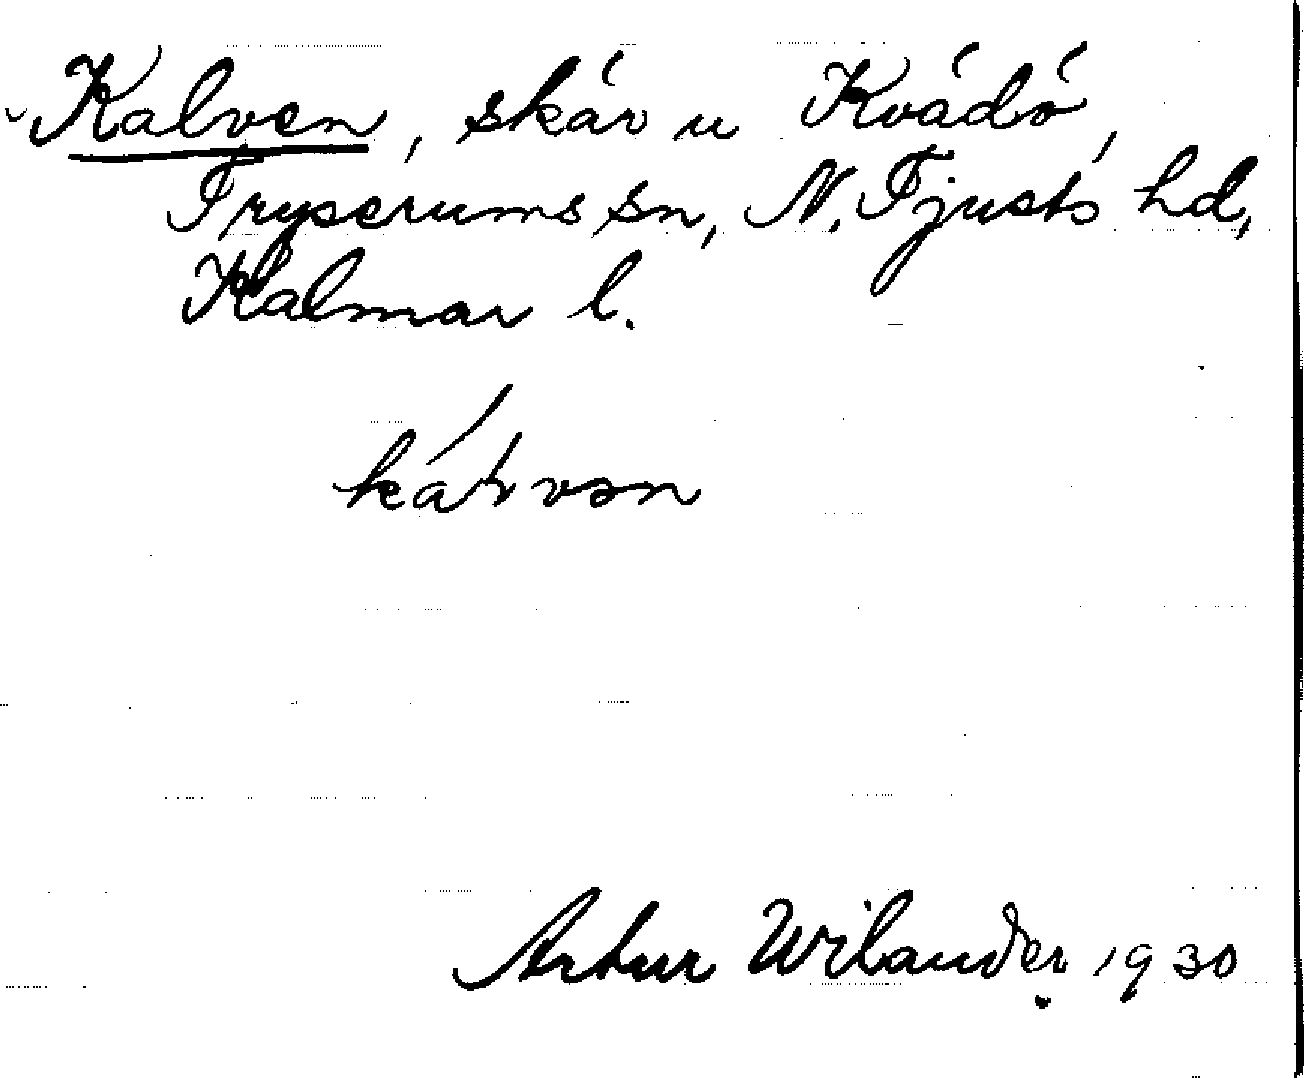 Kalven, skär u Kvädö,
Tryserums sn, N. Tjusts hd,
Kalmar l.
kálvən
Artur Wilander 1930